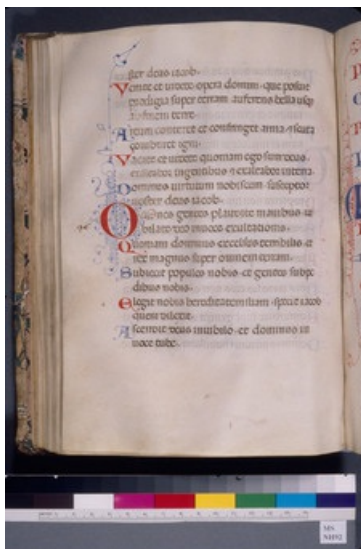 ster deus iacob.
Venite et videte opera domini. que posuit
prodigia super terram auferens bella usqz
ad finem terre.
Arcum conteret et confringet arma et scuta
comburet igni.
Vacate et videte quoniam ego sum deus.
exaltabor in gentibus et exaltabor in terra.
Dominus virtutum nobiscum susceptor
noster deus iacob.
Omnes gentes plaudite manibus iu
bilate deo in voce exultationis.
Quoniam dominus excelsus terribilis et
rex magnus super omnem terram.
Subiecit populos nobis. et gentes sub pe
dibus nostris.
Elegit nobis hereditatem suam. speciem iacob
quem dilexit.
Ascendit deus in iubilo. et dominus in
voce tube.
MS
NH92